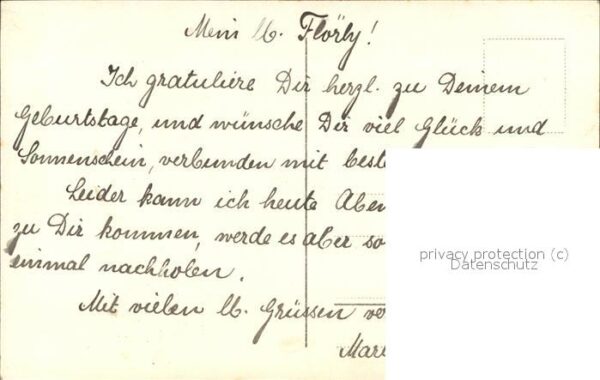 Mein lb. Flörly!
Ich gratuliere Dir herzl. zu Deinem
Geburtstage, und wünsche Dir viel Glück und
Sonnenschein, verbunden mit beste
Leider kann ich heute Aben
zu Dir kommen, werde es aber so
einmal nachholen.
Mit vielen lb. Grüssen ver
Mar
privacy protection (c)
Datenschutz